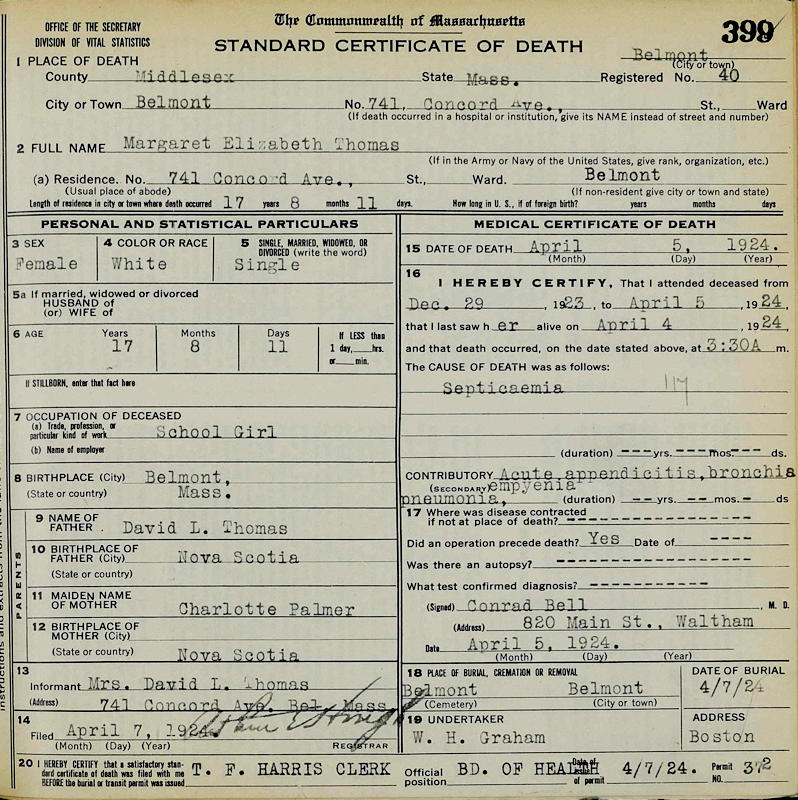 The Commonwealth of Massachusetts
OFFICE OF THE SECRETARY
DIVISION OF VITAL STATISTICS
STANDARD CERTIFICATE OF DEATH
399
1 PLACE OF DEATH
Belmont
(City or town)
County Middlesex State Mass. Registered No. 40
City or Town Belmont No. 741, Concord Ave., St., Ward
(If death occurred in a hospital or institution, give its NAME instead of street and number)
2 FULL NAME Margaret Elizabeth Thomas
(If in the Army or Navy of the United States, give rank, organization, etc.)
(a) Residence. No. 741 Concord Ave., St., Ward. Belmont
(Usual place of abode) (If non-resident give city or town and state)
Length of residence in city or town where death occurred 17 years 8 months 11 days. How long in U. S., if of foreign birth? years months days
PERSONAL AND STATISTICAL PARTICULARS
3 SEX 4 COLOR OR RACE 5 SINGLE, MARRIED, WIDOWED, OR
DIVORCED (write the word)
Female White Single
5a If married, widowed or divorced
HUSBAND of
(or) WIFE of
6 AGE Years Months Days If LESS than
17 8 11 1 day, hrs.
or min.
If STILLBORN, enter that fact here
7 OCCUPATION OF DECEASED
(a) Trade, profession, or
particular kind of work School Girl
(b) Name of employer
8 BIRTHPLACE (City) Belmont,
(State or country) Mass.
PARENTS
9 NAME OF
FATHER David L. Thomas
10 BIRTHPLACE OF
FATHER (City) Nova Scotia
(State or country)
11 MAIDEN NAME
OF MOTHER Charlotte Palmer
12 BIRTHPLACE OF
MOTHER (City)
(State or country) Nova Scotia
13
Informant Mrs. David L. Thomas
(Address) 741 Concord Ave. Bel. Mass.
14
Filed April 7, 1924
(Month) (Day) (Year) REGISTRAR
MEDICAL CERTIFICATE OF DEATH
15 DATE OF DEATH April 5, 1924.
(Month) (Day) (Year)
16
I HEREBY CERTIFY, That I attended deceased from
Dec. 29 , 1923, to April 5 , 1924,
that I last saw her alive on April 4 , 1924,
and that death occurred, on the date stated above, at 3:30A m.
The CAUSE OF DEATH was as follows:
Septicaemia
(duration) ---yrs. ---mos. --- ds.
CONTRIBUTORY Acute appendicitis, bronchia
(SECONDARY) empyenia
pneumonia, (duration) --yrs. -- mos. - ds
17 Where was disease contracted
if not at place of death? ------------
Did an operation precede death? Yes Date of ----
Was there an autopsy? --------------
What test confirmed diagnosis? ------------
(Signed) Conrad Bell , M. D.
(Address) 820 Main St., Waltham
Date April 5, 1924.
(Month) (Day) (Year)
18 PLACE OF BURIAL, CREMATION OR REMOVAL DATE OF BURIAL
Belmont Belmont 4/7/24
(Cemetery) (City or town)
19 UNDERTAKER ADDRESS
W. H. Graham Boston
20 I HEREBY CERTIFY that a satisfactory stan-
dard certificate of death was filed with me
BEFORE the burial or transit permit was issued T. F. HARRIS CLERK Official
position BD. OF HEALTH Date of issue
of permit 4/7/24. Permit
NO. 372